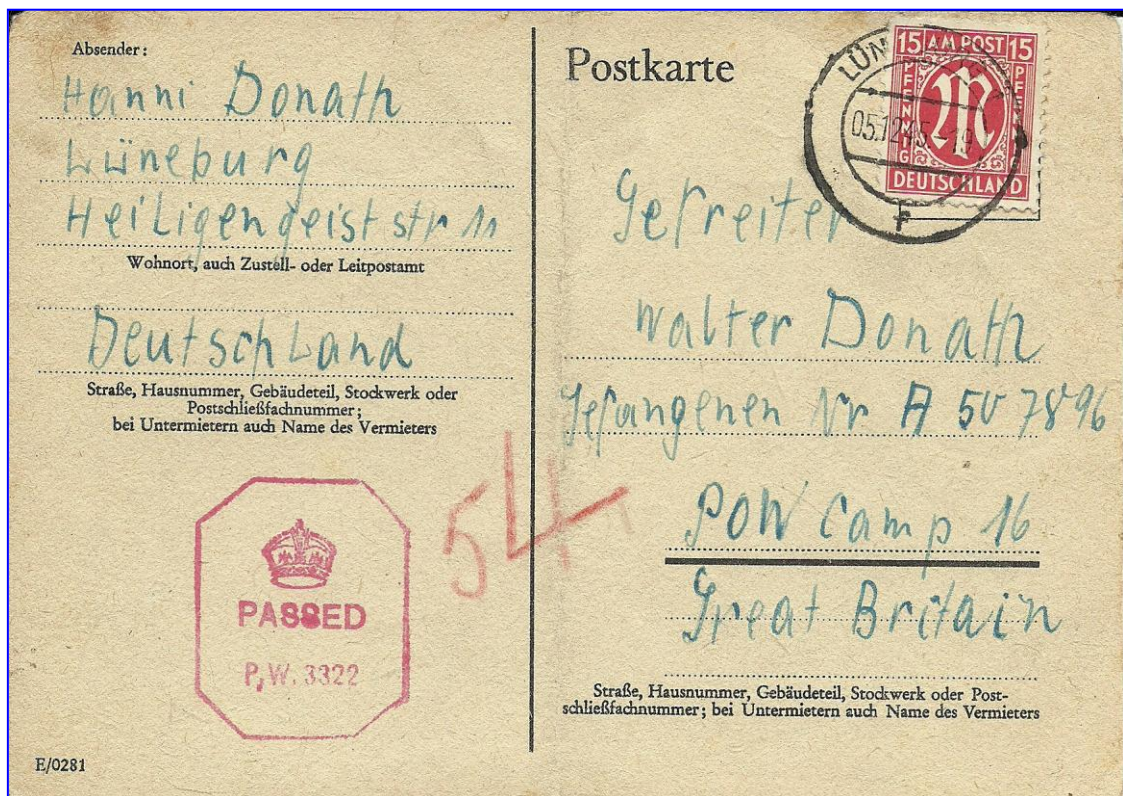 Absender:
Hanni Donath
Lüneburg
Heiligengeiststr 11
Wohnort, auch Zustell- oder Leitpostamt
Deutschland
Straße, Hausnummer, Gebäudeteil, Stockwerk oder
Postschließfachnummer;
bei Untermietern auch Name des Vermieters
PASSED
P,W. 3322
E/0281
54
Postkarte
15 AM POST 15
PFENNIG
M
PFENNIG
DEUTSCHLAND
05.12.45.-19
F
Gefreiter
Walter Donath
Gefangenen Nr A 50 78 96
POW Camp 16
Great Britain
Straße, Hausnummer, Gebäudeteil, Stockwerk oder Post-
schließfachnummer; bei Untermietern auch Name des Vermieters